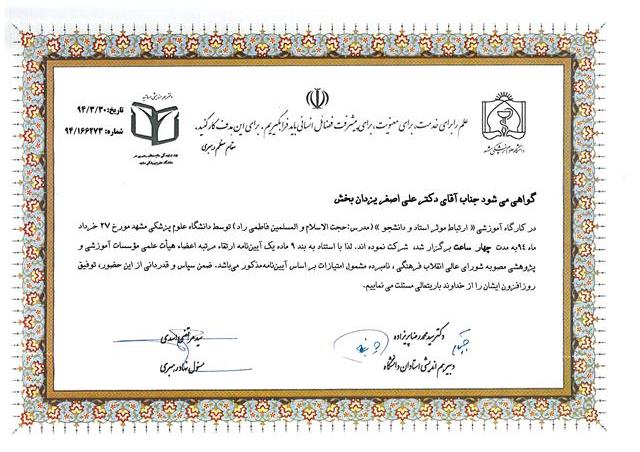 تاریخ: ۹۴/۳/۳۰
شماره: ۹۴/۱۶۶۲۷۳
علم را برای خدمت، برای معنویت، برای پیشرفت فضائل انسانی باید فراگیریم. برای این هدف کار کنید.
مقام معظم رهبری
دانشگاه علوم پزشکی مشهد
گواهی می شود جناب آقای دکتر علی اصغر یزدان بخش
در کارگاه آموزشی « ارتباط موثر استاد و دانشجو » (مدرس:حجت الاسلام و المسلمین فاطمی راد) توسط دانشگاه علوم پزشکی مشهد مورخ ۲۷ خرداد
ماه ۹۴به مدت چهار ساعت برگزار شد، شرکت نموده اند. لذا با استناد به بند ۹ ماده یک آیین‌نامه ارتقاء مرتبه اعضاء هیأت علمی مؤسسات آموزشی و
پژوهشی مصوبه شورای عالی انقلاب فرهنگی ، نامبرده مشمول امتیازات بر اساس آیین‌نامه‌مذکور می‌باشد. ضمن سپاس و قدردانی از این حضور، توفیق
روزافزون ایشان را از خداوند باریتعالی مسئلت می نماییم.
دکتر سید محمدرضا پریزاده
دبیر هم اندیشی استادان دانشگاه
سید مرتضی اسدی
مسئول نهاد رهبری